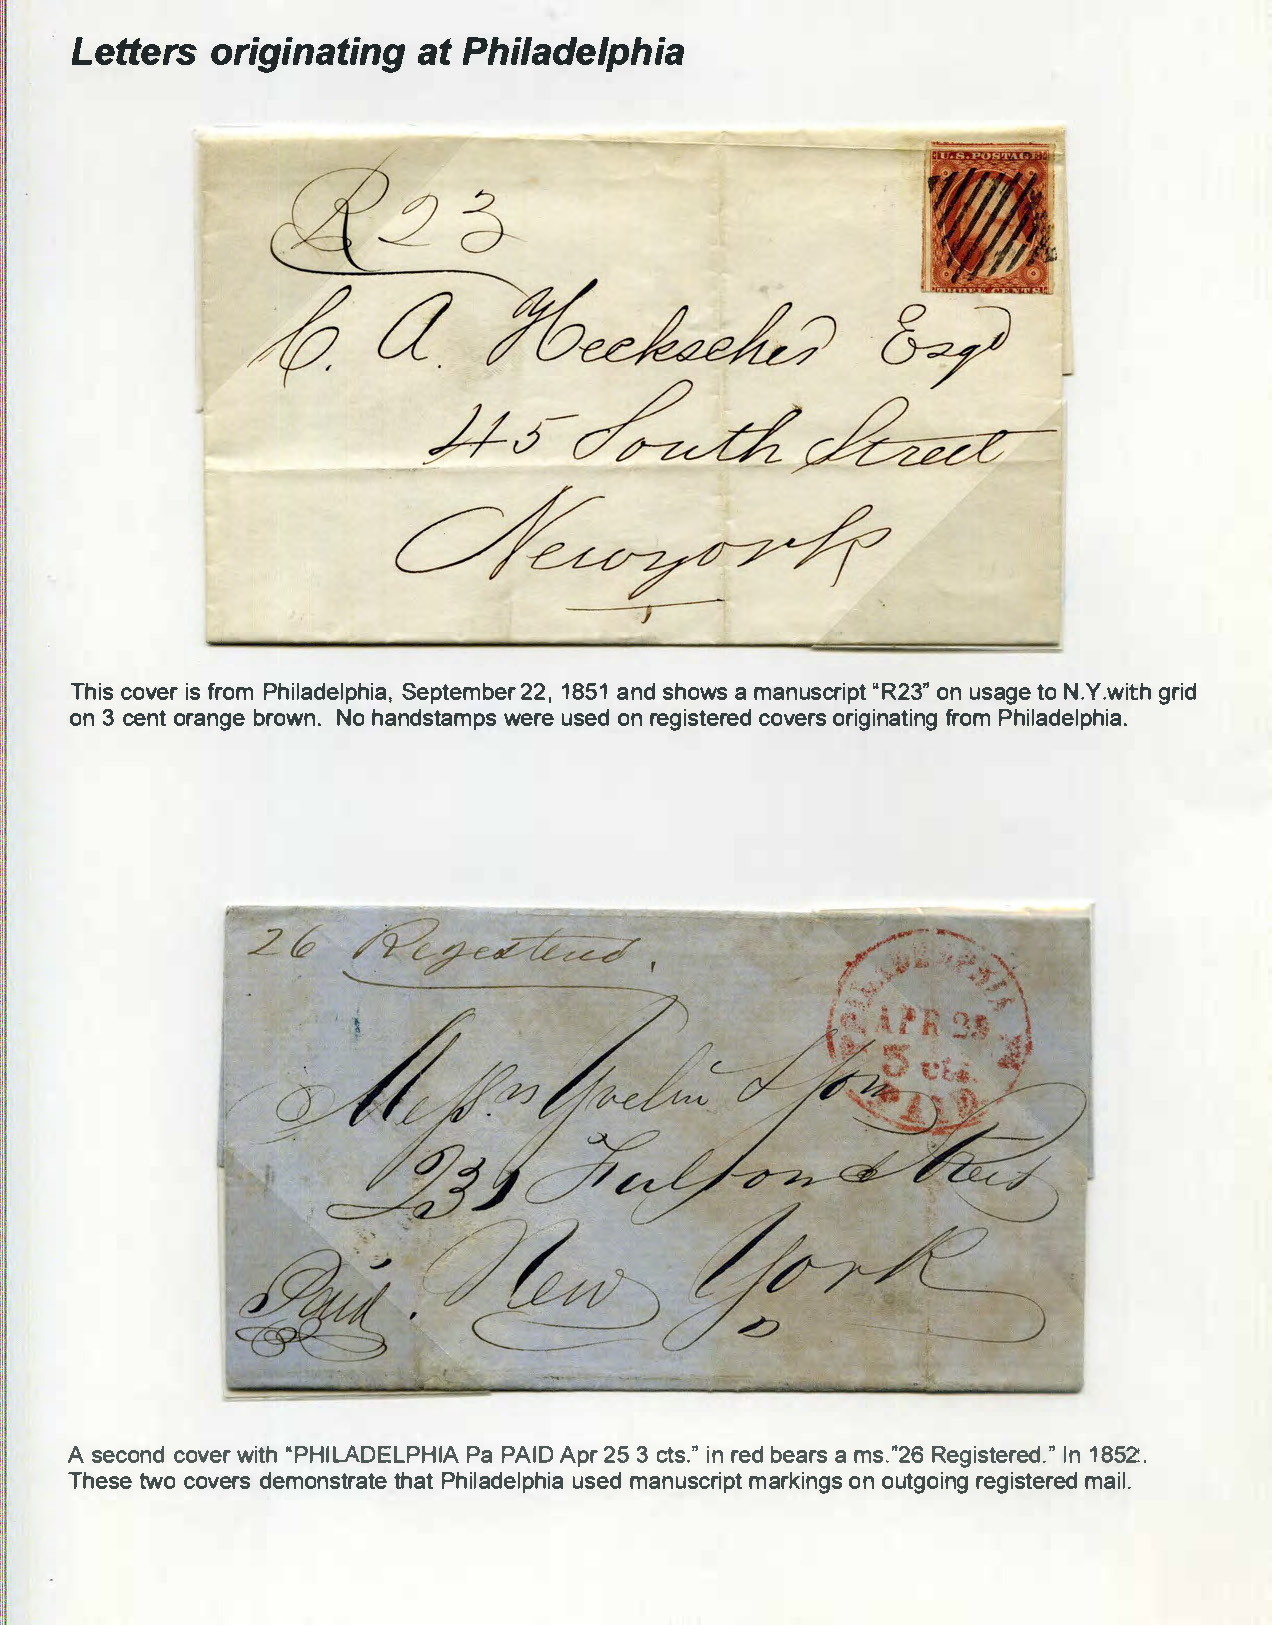 Letters originating at Philadelphia
R 23
U.S. POSTAGE
THREE CENTS
C. A. Heckscher Esqr
45 South Street
Newyork
This cover is from Philadelphia, September 22, 1851 and shows a manuscript "R23" on usage to N.Y.with grid
on 3 cent orange brown. No handstamps were used on registered covers originating from Philadelphia.
26 Registered.
PHILADELPHIA Pa
APR 25
3 cts.
PAID
Messrs & Son
Fulton Street
New York
Paid.
A second cover with "PHILADELPHIA Pa PAID Apr 25 3 cts." in red bears a ms."26 Registered." In 1852.
These two covers demonstrate that Philadelphia used manuscript markings on outgoing registered mail.